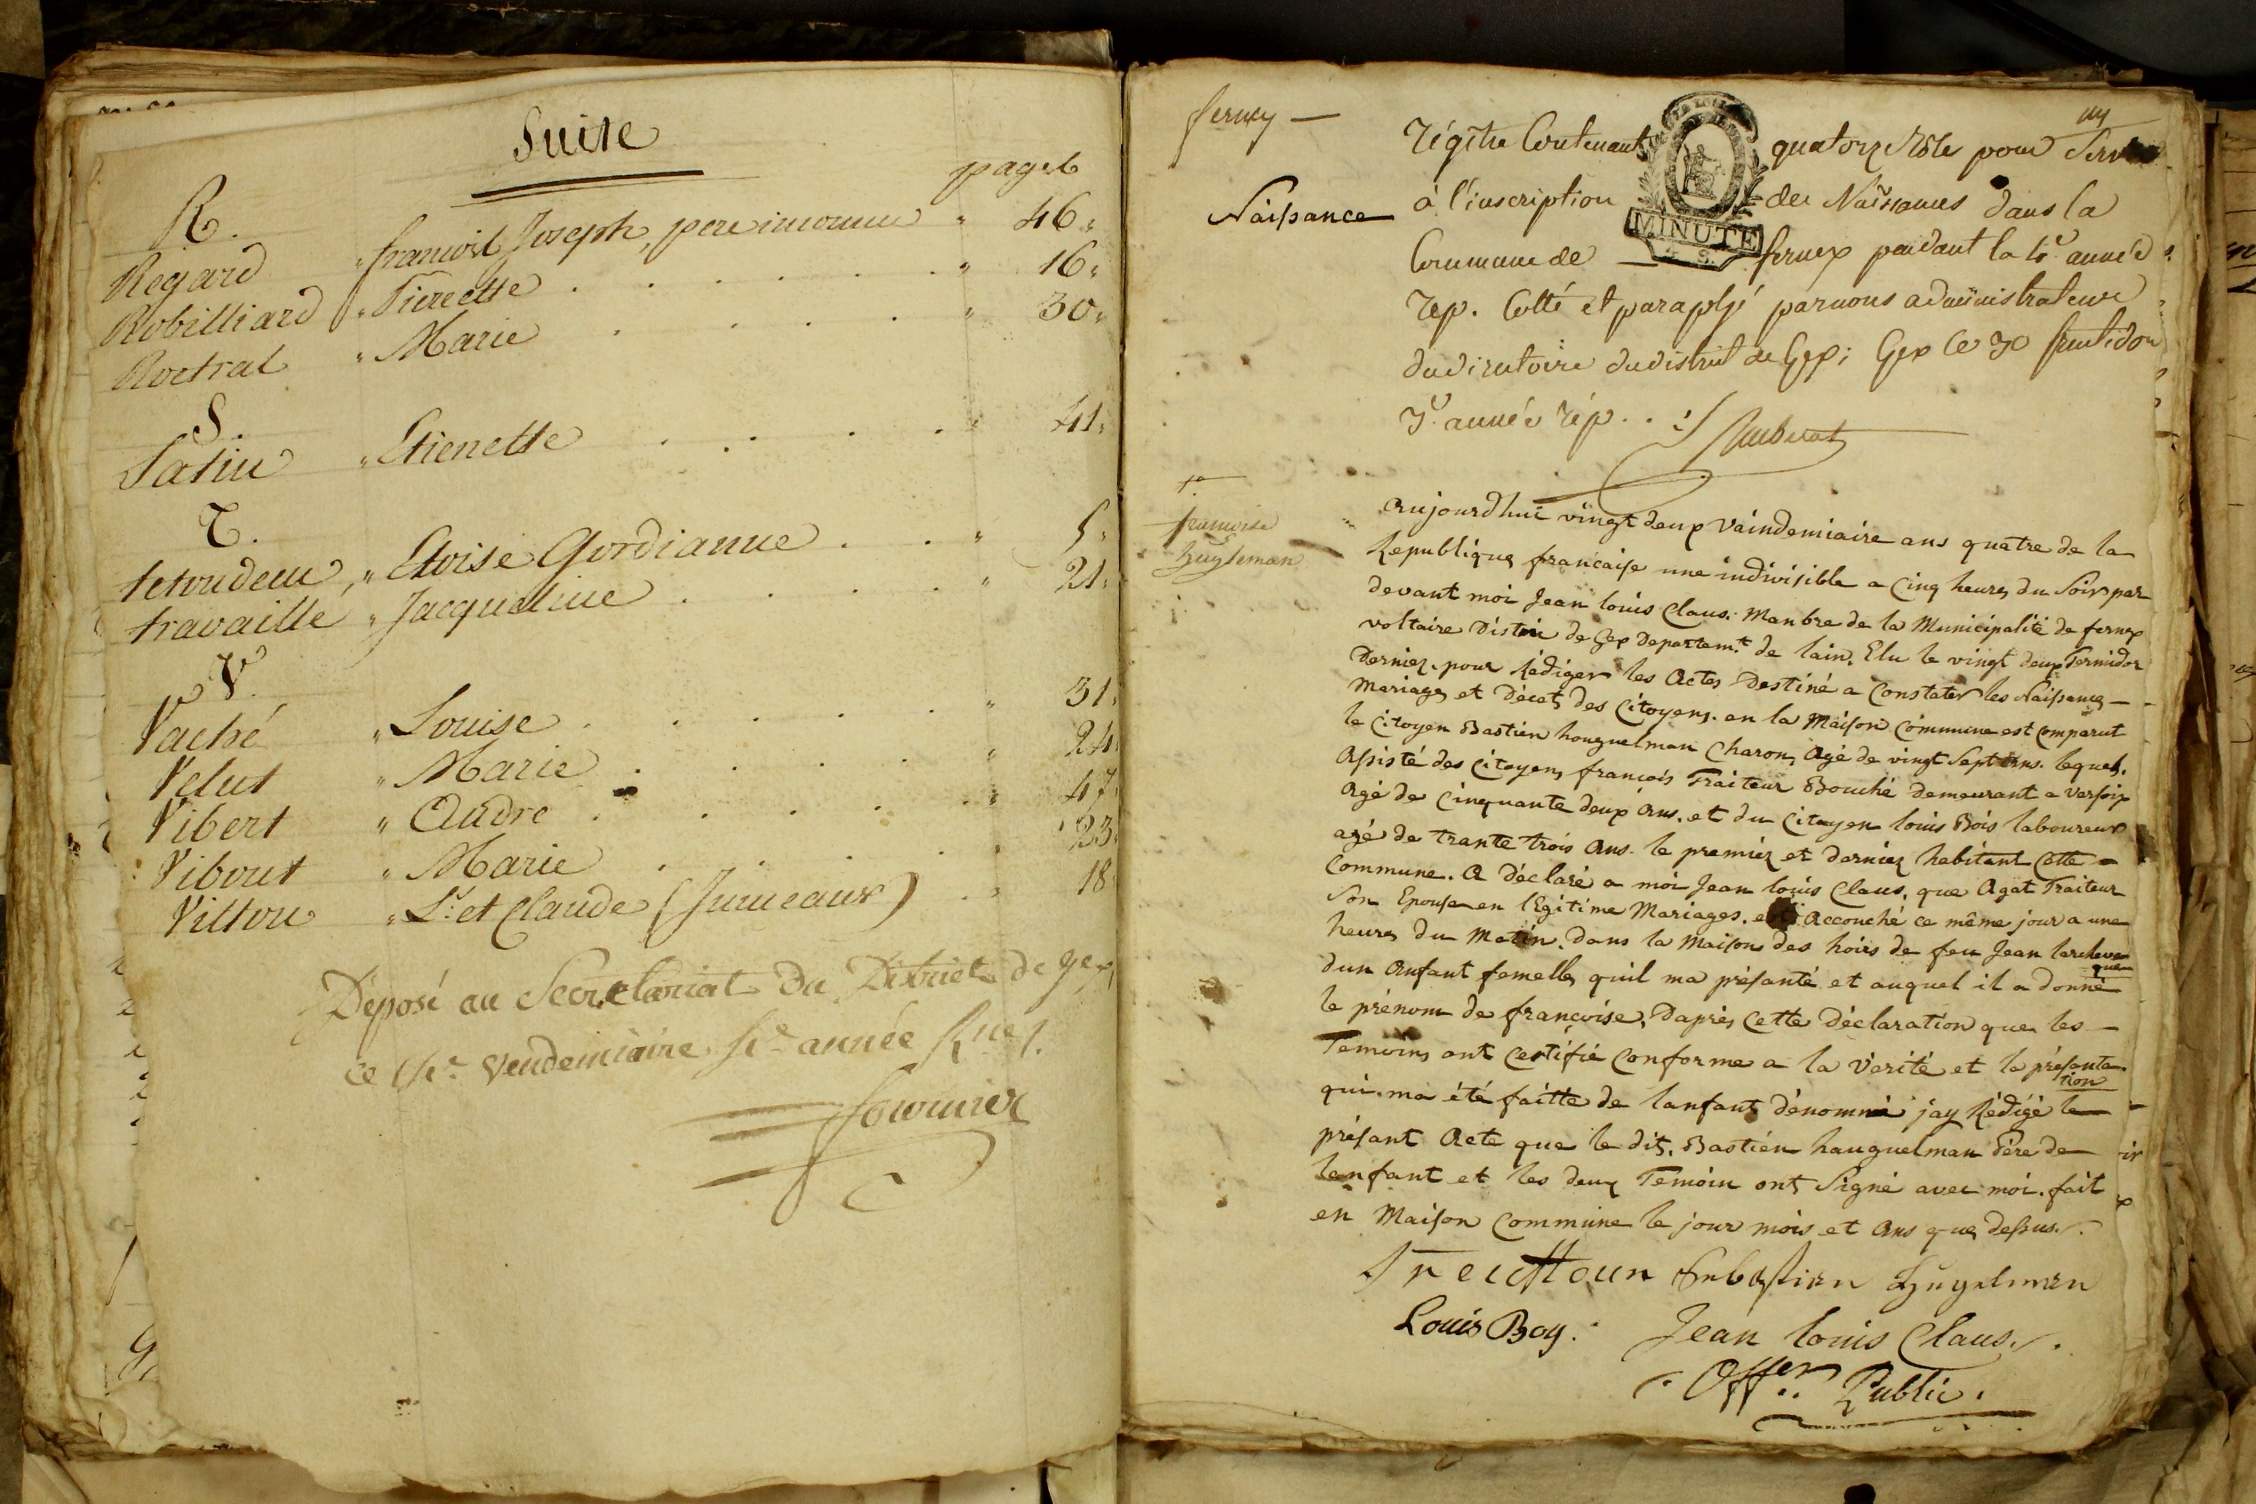 Suite
pages
R.
Regard " francois Joseph, pere inconnu " 46.
Robilliard " Pierette . . . . . " 16.
Roetral " Marie . . . . " 30.
S
Satin " Etienette . . . . " 41.
T.
tetoudeur, " Eloise Gordianne . . " 5.
travaille, " Jacqueline . . . . " 21.
V.
Vaché " Louise . . . . . " 31.
Velut " Marie . . . . " 24.
Vibert " Andre . . . . . " 47.
Vibout " Marie . . . . . 23.
Viltou " Ls. et Claude (Jumeaux) . " 18
Déposé au Secretariat du District de gex,
ce vendemiaire 4e année
fournier
ferney —
Naissance
Régitre Contenant quatorze Rôles pour Servir
à l'inscription des Naissances dans la
MINUTE
Commune de — fernex pendant la 4e année
rep. Cotté et paraphé par nous administrateur
du directoire du district de Gex; Gex le 30 fructidor
3e année rép. . .
1e
francoise
hugleman
Aujourdhui vingt deux Vaindemiaire ans quatre de la
Republique francaise une indivisible a Cinq heures du Soir par
devant moi Jean louis Claus. Manbre de la Municipalité de fernex
voltaire District de Gex Departemt. de lain. Elu le vingt deux Termidor
Dernier. pour Rédiger les Actes Destiné a Constater les Naissances —
Mariages et Décets des Citoyens. en la Maison Commune est Comparut
le Citoyen Bastien houguelman Charon, Agé de vingt Sept Ans. lequel.
Assisté des Citoyens francois Traiteur Bouché demeurant a Versoix
Agé de Cinquante deux Ans. et du Citoyen louis Bois laboureur
agé de trante trois Ans. le premier et dernier habitant Cette —
Commune. A déclaré a moi Jean louis Claus, que Agat Traiteur
Son Epouse en lEgitime Mariages. est Accouché ce même jour a une
heures du Matin. Dans la Maison des hoirs de feu Jean larcheve
que
dun Anfant femelle, quil ma présanté et auquel il a donné
le prénom de françoise, Daprès Cette Déclaration que les —
Temoins ont Certifié Conforme a la Vérité et la présanta
tion
qui ma été faitte de lanfant dénommé jay Rédigé le
présant Acte que le dit, Bastien hauguelman Père de
lenfant et les deux Temoin ont Signé avec moi. fait
en Maison Commune le jour mois et Ans que dessus.
Sebastien Hugelmen
Louis Boy. Jean louis Claus.
Offer. Public.